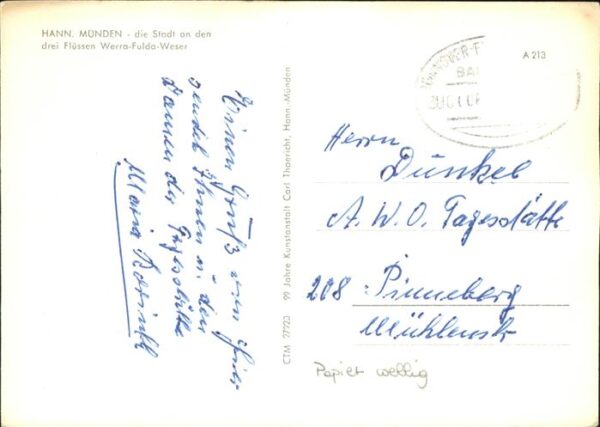 HANN. MÜNDEN - die Stadt an den
drei Flüssen Werra-Fulda-Weser
A 213
HANNOVER-F
BA
ZUG
Einen Gruß von
sendet Ihnen u. den
Damen der Tagesstätte
Maria
CTM 27923 99 Jahre Kunstanstalt Carl Thoericht, Hann.-Münden
Herrn
Dunkel
A.W.O. Tagesstätte
208 Pinneberg
Mühlenstr
Papier wellig